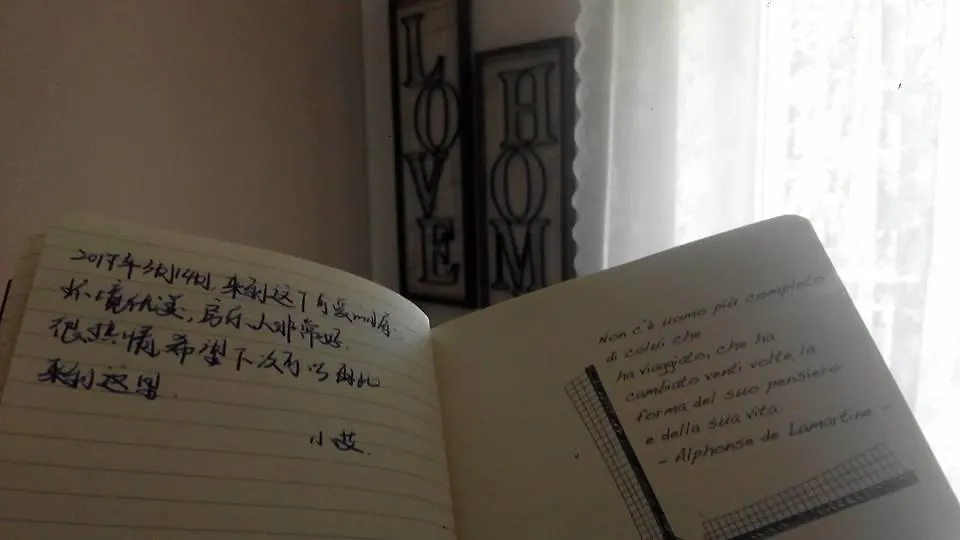 LOVE
HOM
2017年3月14日,来到这个可爱的
环境优美,房东人非常好.
很热情,希望下次有
来到这里.
小艾.
Non c'è uomo più completo
di colui che
ha viaggiato, che ha
cambiato venti volte, la
forma del suo pensiero
e della sua vita.
- Alphonse de Lamartine -